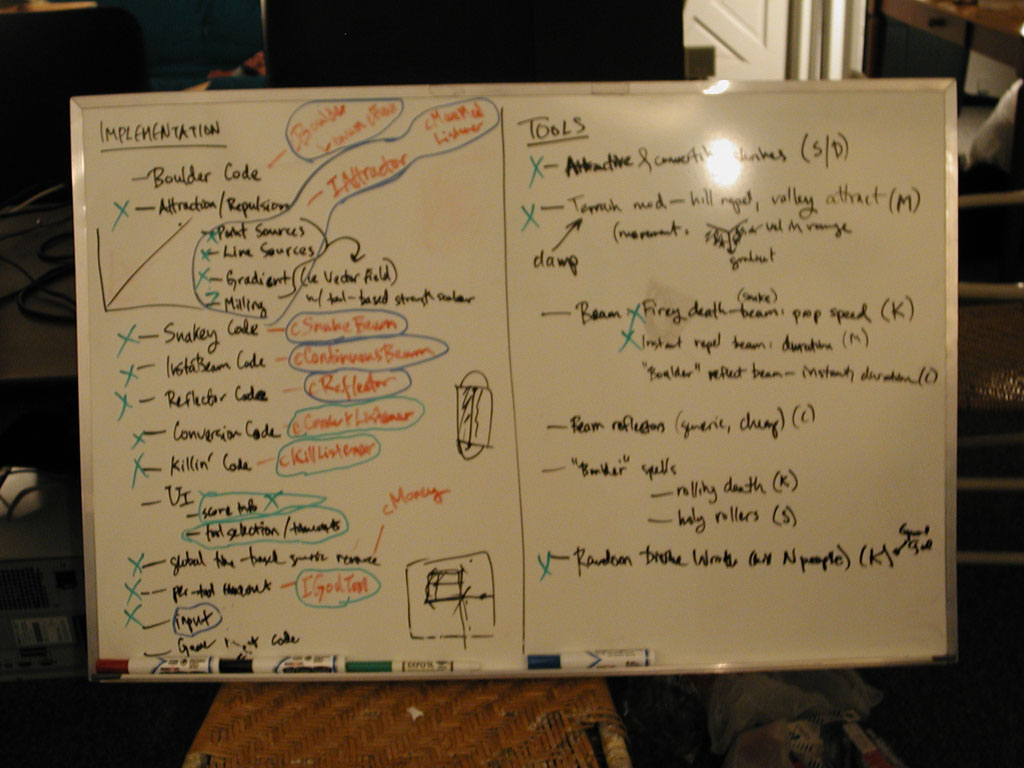 IMPLEMENTATION
Boulder
- Boulder Code
cManMed Listener
IAttractor
X - Attraction/Repulsion
X Point Sources
X - Line Sources
X - Gradient (ie Vector Field)
w/ tool-based strength scalar
Z Milling
X - Snakey Code - cSnakeBeam
X - InstaBeam Code - cContinuousBeam
X - Reflector Code - cReflector
X - Conversion Code - cConvertListener
X - Killin' Code - cKillListener
- UI
- score info X
- tool selection/timeouts
cMoney
X - global time-based generic resource
X - per-tool timeout - IGodTool
X - input
- Game code
TOOLS
X - Attractive & convertible shrines (S/D)
X - Terrain mod - hill repel, valley attract (M)
(movement: in range
gradient
clamp
- Beam X Firey death-beam: prop speed (K)
(snake)
X Instant repel beam: duration (M)
"Boulder" reflect beam - instant, duration (C)
- Beam reflectors (generic, cheap) (C)
- "Boulder" spells
- rolling death (K)
- holy rollers (S)
X - Random Divine Wrath (kill N people) (K)
EXPO